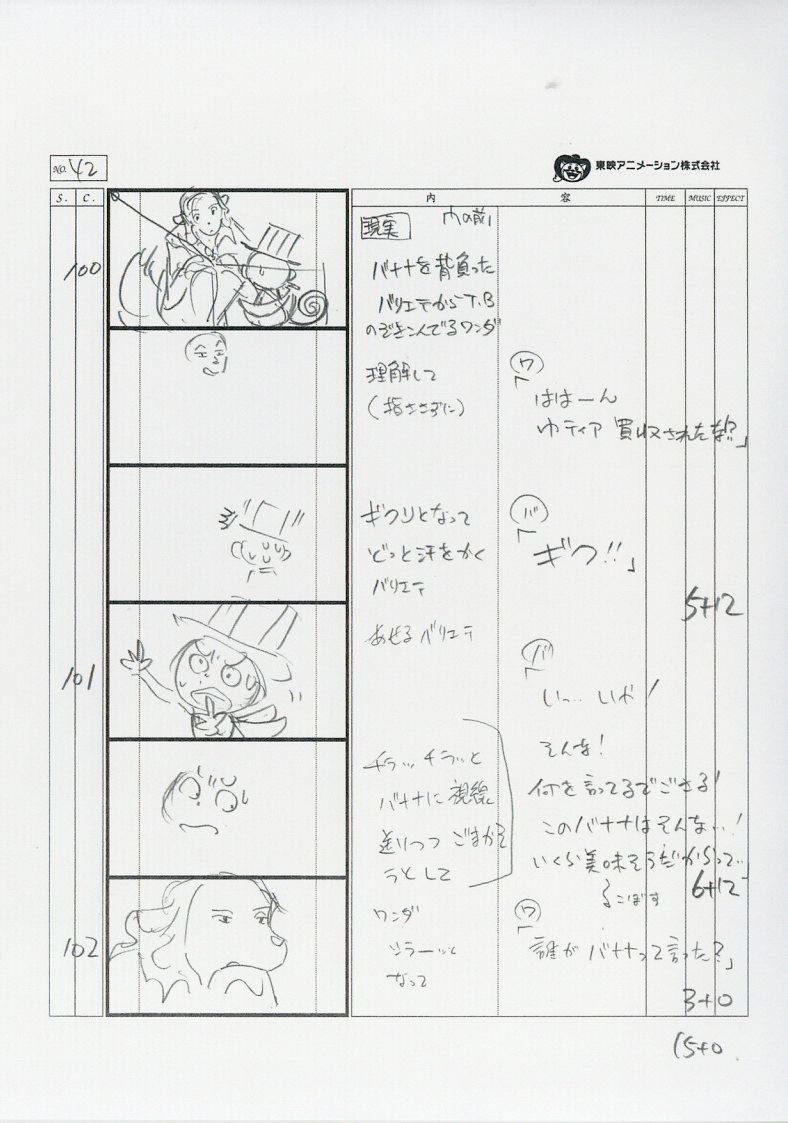 No. 42
東映アニメーション株式会社
S. C. 内 容 TIME MUSIC EFFECT
100
現実
バナナを背負った
バリエテからT.B
のぞきこんでるワンダ
理解して
(指ささずに)
ワ
「ははーん
ゆティア 買収されたな!?」
ギクリとなって
どっと汗をかく
バリエテ
バ
「ギク!!」
5+12
101
あせるバリエテ
バ
「いっ… いや!
そんな!
チラッチラッと
バナナに視線
送りつつ ごまかそ
うとして
何を言ってるでござる!
このバナナはそんな…!
いくら美味そうだからって…」
こぼす
6+12
102
ワンダ
シラーッと
なって
ワ
「誰がバナナって言った?」
3+0
15+0